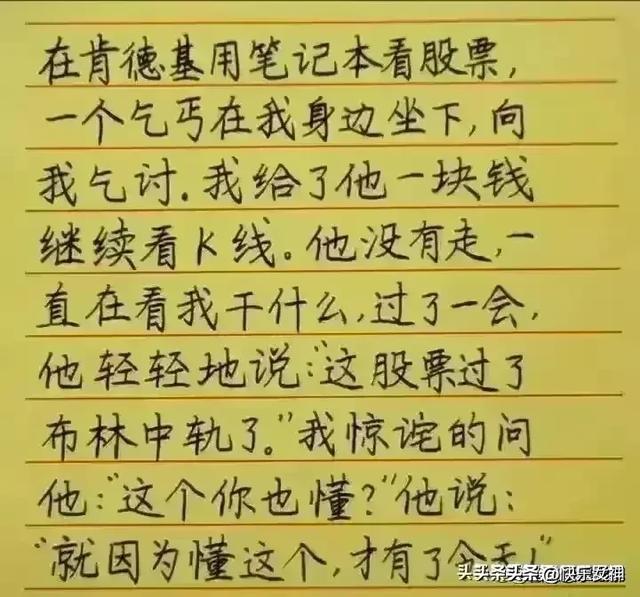 在肯德基用笔记本看股票,
一个乞丐在我身边坐下,向
我乞讨.我给了他一块钱
继续看K线。他没有走,一
直在看我干什么,过了一会,
他轻轻地说:“这股票过了
布林中轨了。”我惊诧的问
他:“这个你也懂?”他说:
“就因为懂这个,才有了今天!”
头条 @快乐女神